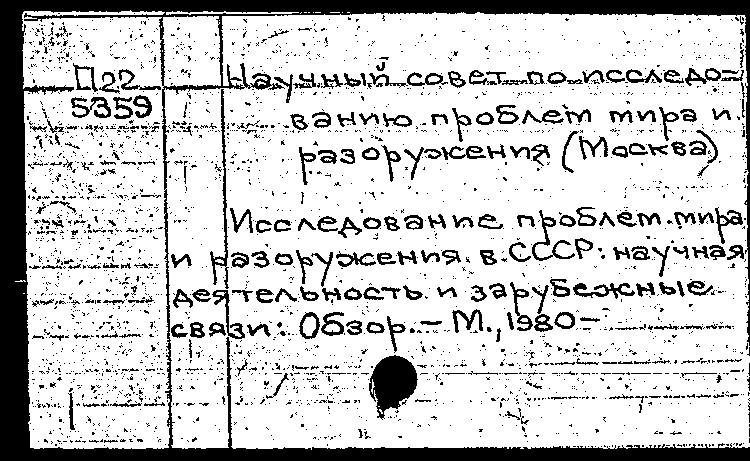 П22 Научный совет по исследо=
5359 ванию проблем мира и
разоружения (Москва)
Исследование проблем мира
и разоружения в СССР: научная
деятельность и зарубежные
связи: Обзор. – М., 1980 –